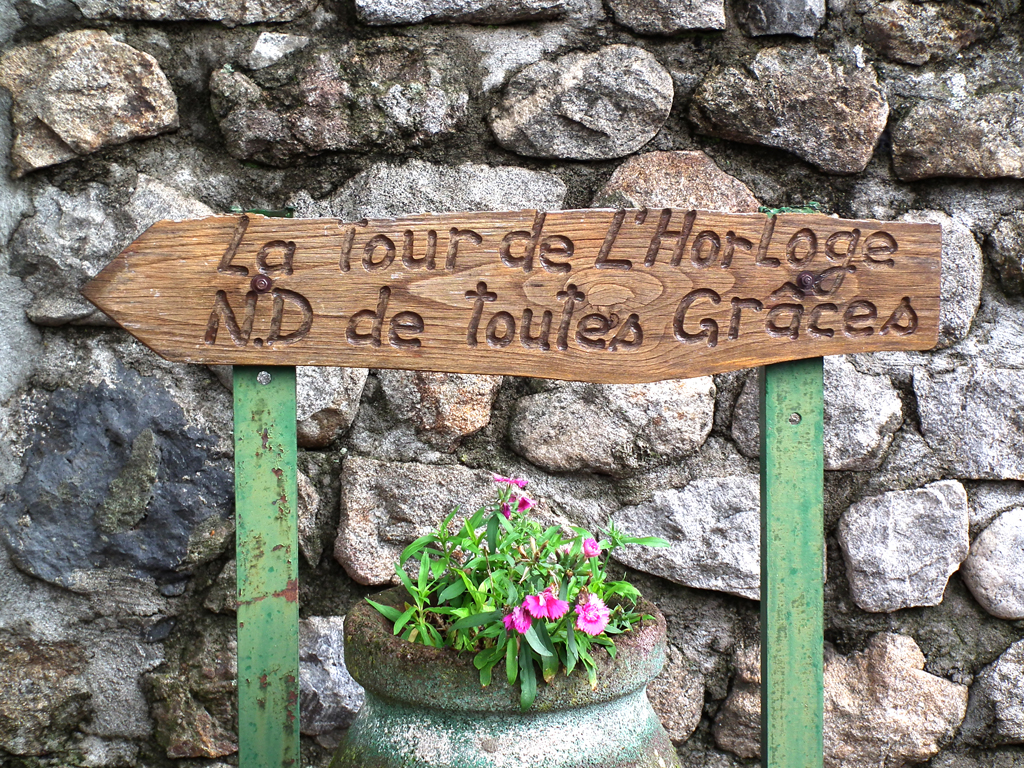 La Tour de L'Horloge
N.D de toutes Grâces